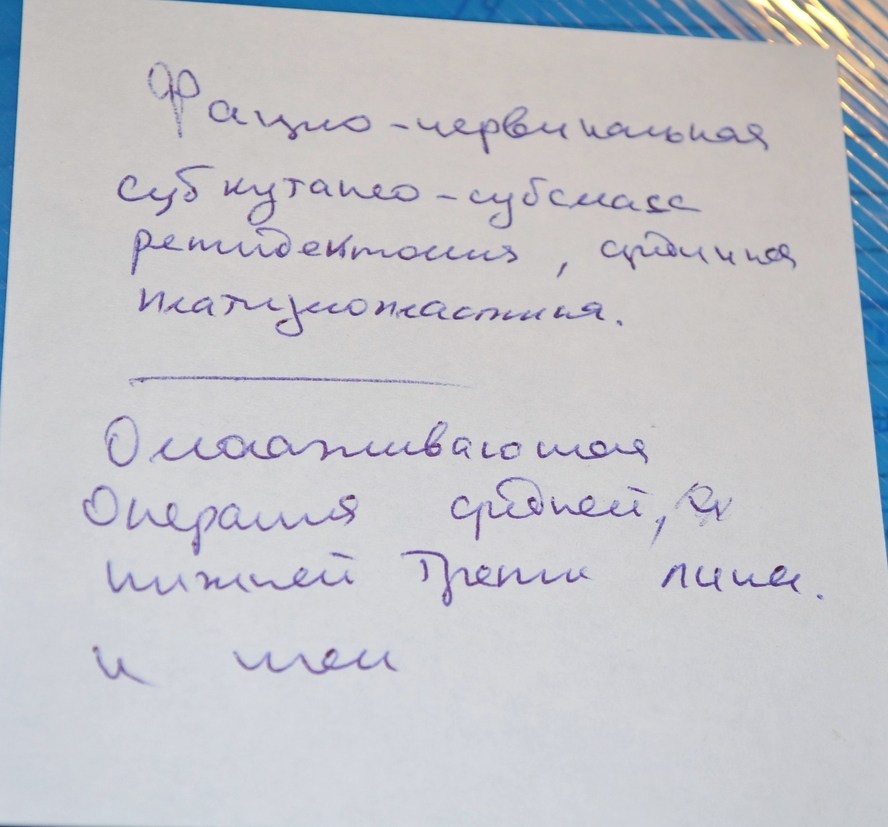 Фацио-цервикальная
субкутанео-субсмасс
ретидектомия, срединная
платизмопластика.
Омолаживающая
Операция средней,
нижней трети лица.
и шеи